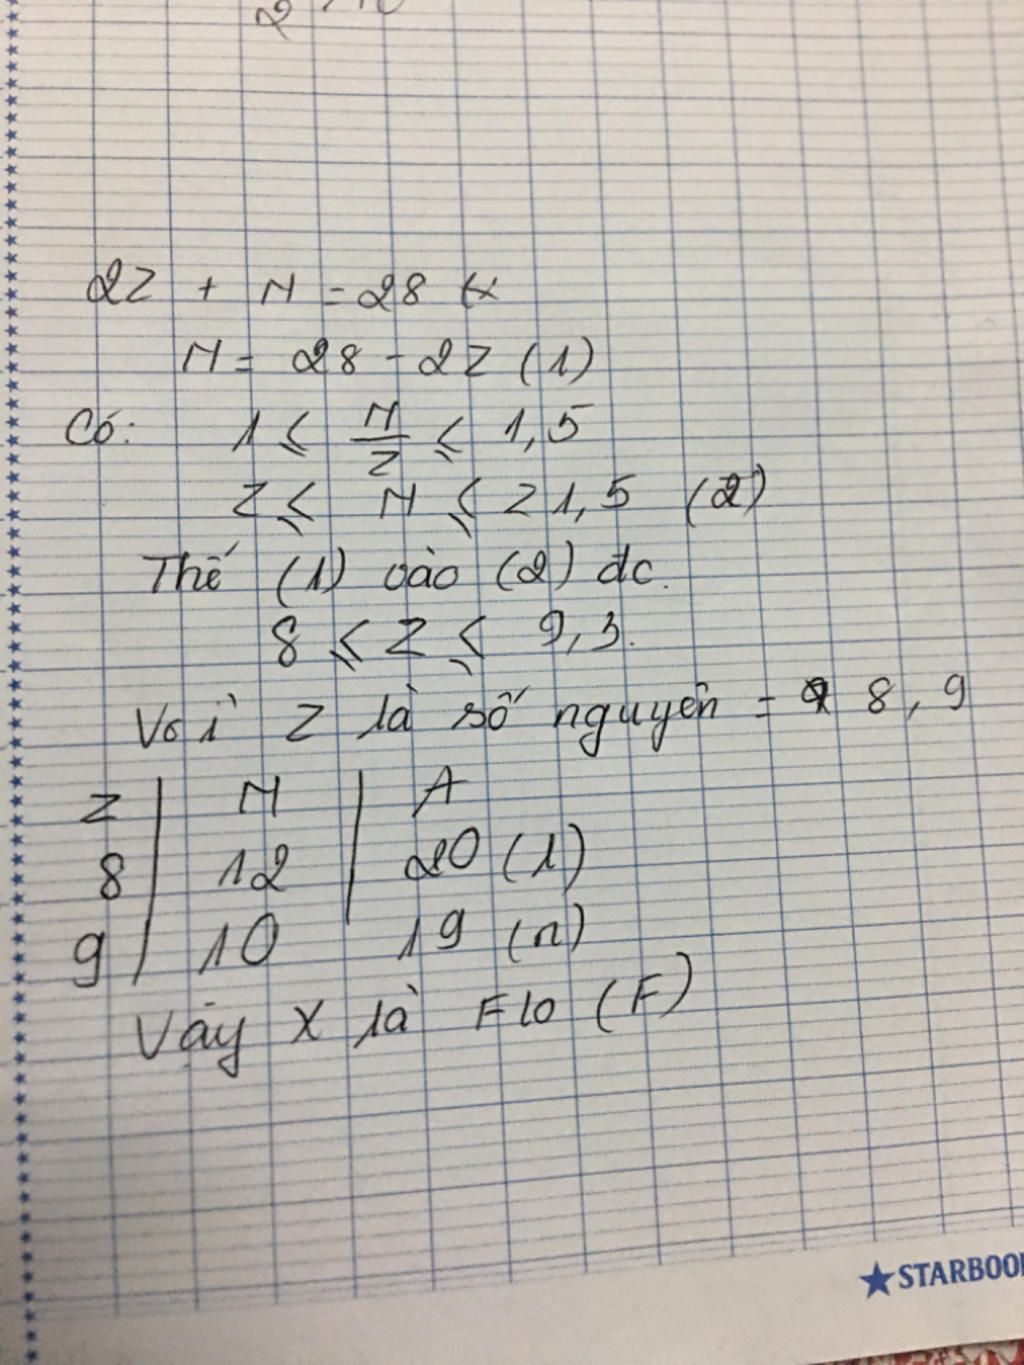 2Z + N = 28
N = 28 - 2Z (1)
Có: 1 ≤ N/Z ≤ 1,5
Z ≤ N ≤ Z 1,5 (2)
Thế (1) vào (2) đc.
8 ≤ Z ≤ 9,3.
Với Z là số nguyên = 8, 9
Z | N | A
8 | 12 | 20 (l)
9 | 10 19 (n)
Vậy X là Flo (F)
★STARBOOK